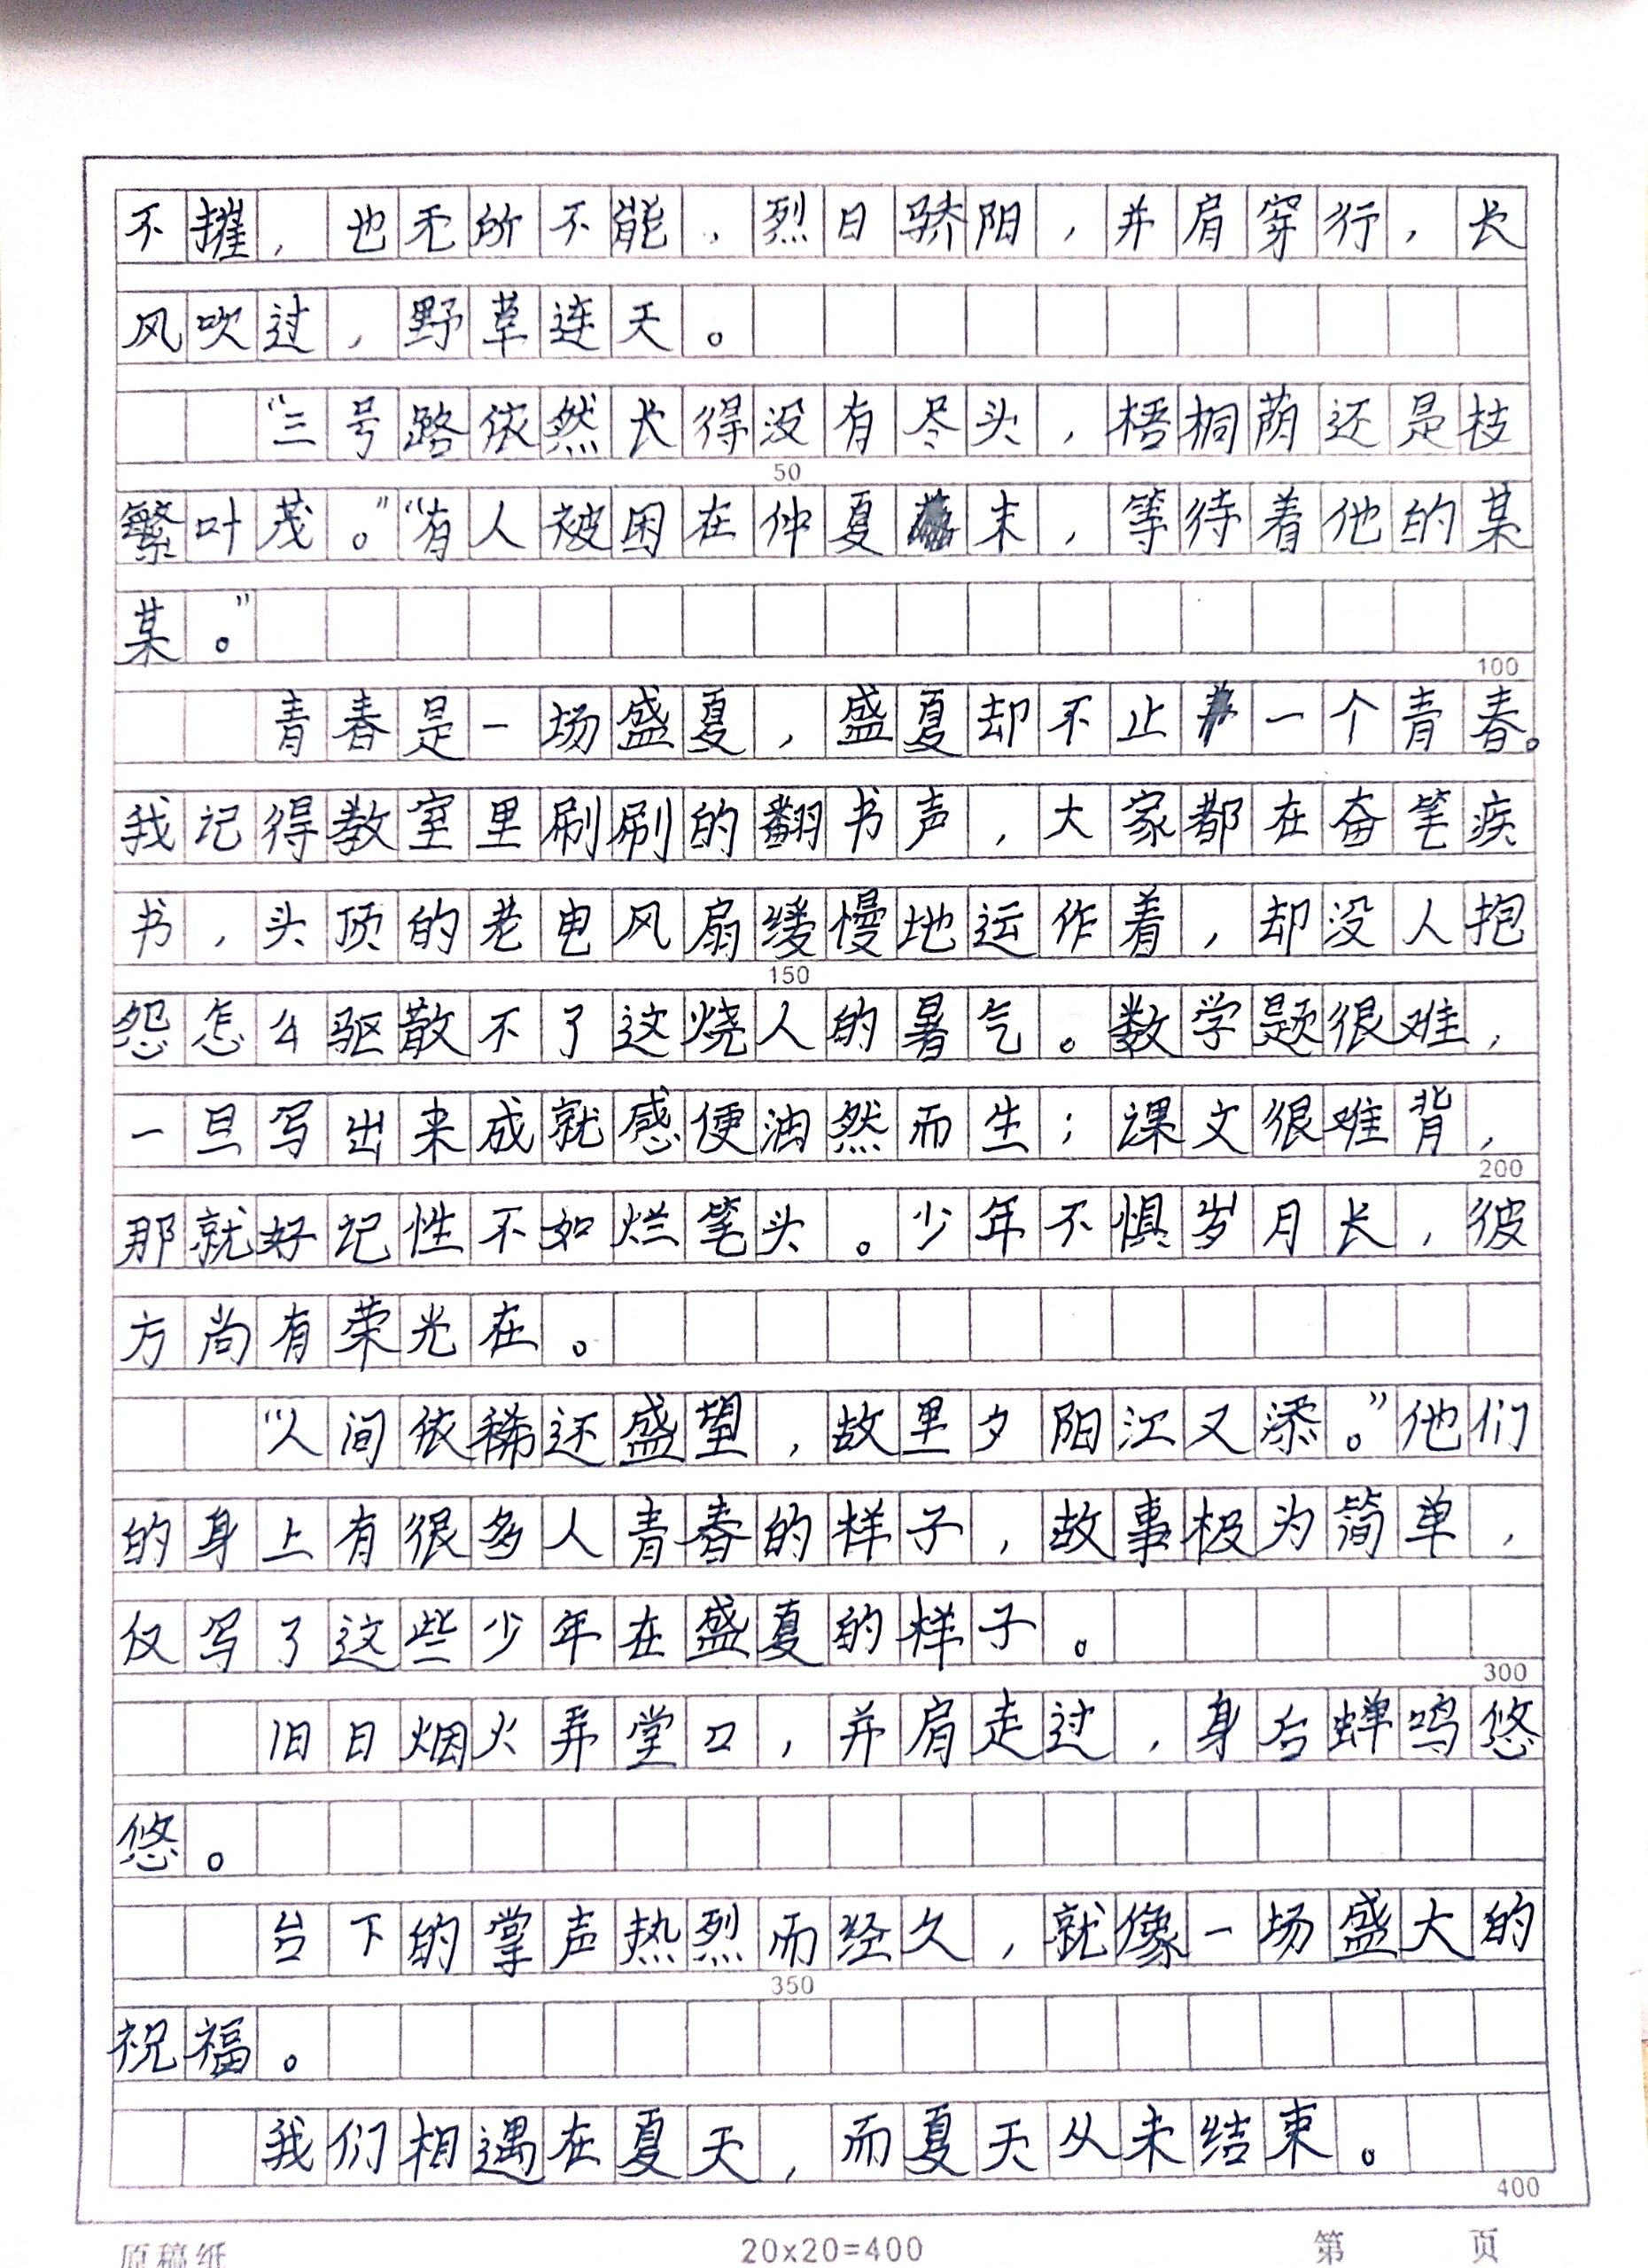 不摧，也无所不能，烈日骄阳，并肩穿行，长
风吹过，野草连天。
“三号路依然长得没有尽头，梧桐荫还是枝
50
繁叶茂。”“有人被困在仲夏末，等待着他的某
某。”
100
青春是一场盛夏，盛夏却不止一个青春。
我记得教室里刷刷的翻书声，大家都在奋笔疾
书，头顶的老电风扇缓慢地运作着，却没人抱
150
怨怎么驱散不了这烧人的暑气。数学题很难，
一旦写出来成就感便油然而生；课文很难背，
200
那就好记性不如烂笔头。少年不惧岁月长，彼
方尚有荣光在。
“人间依稀还盛望，故里夕阳江又添。”他们
的身上有很多人青春的样子，故事极为简单，
仅写了这些少年在盛夏的样子。
300
旧日烟火弄堂口，并肩走过，身后蝉鸣悠
悠。
台下的掌声热烈而经久，就像一场盛大的
350
祝福。
我们相遇在夏天，而夏天从未结束。
400
原稿纸 20x20=400 第 页